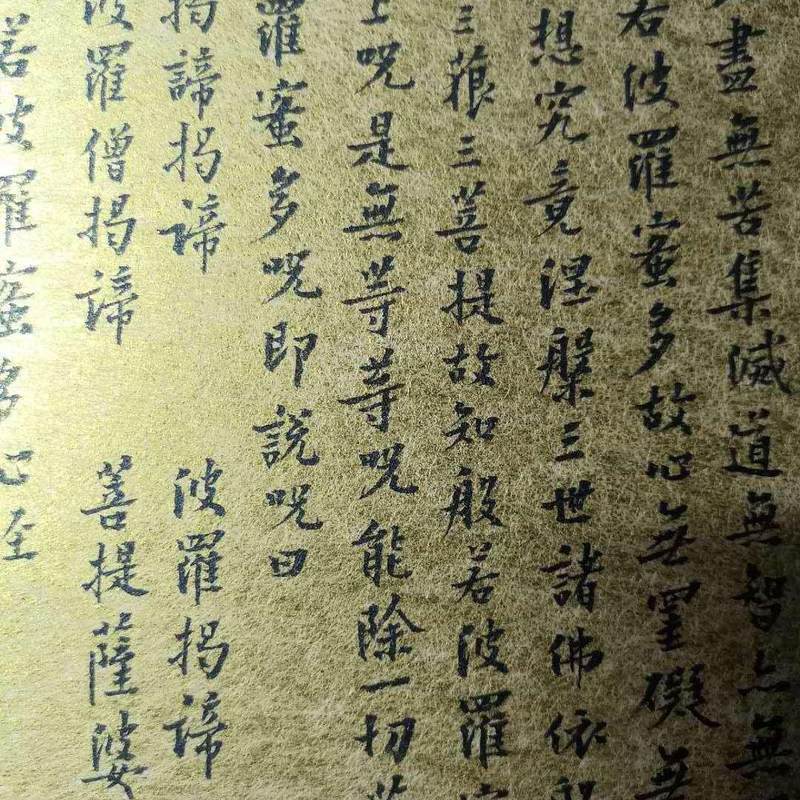 盡無苦集滅道無智亦無
若波羅蜜多故心無罣礙無
想究竟涅槃三世諸佛依般
三藐三菩提故知般若波羅蜜
上呪是無等等呪能除一切苦
羅蜜多呪即說呪曰
揭諦揭諦 波羅揭諦
波羅僧揭諦 菩提薩婆
若波羅蜜多心経